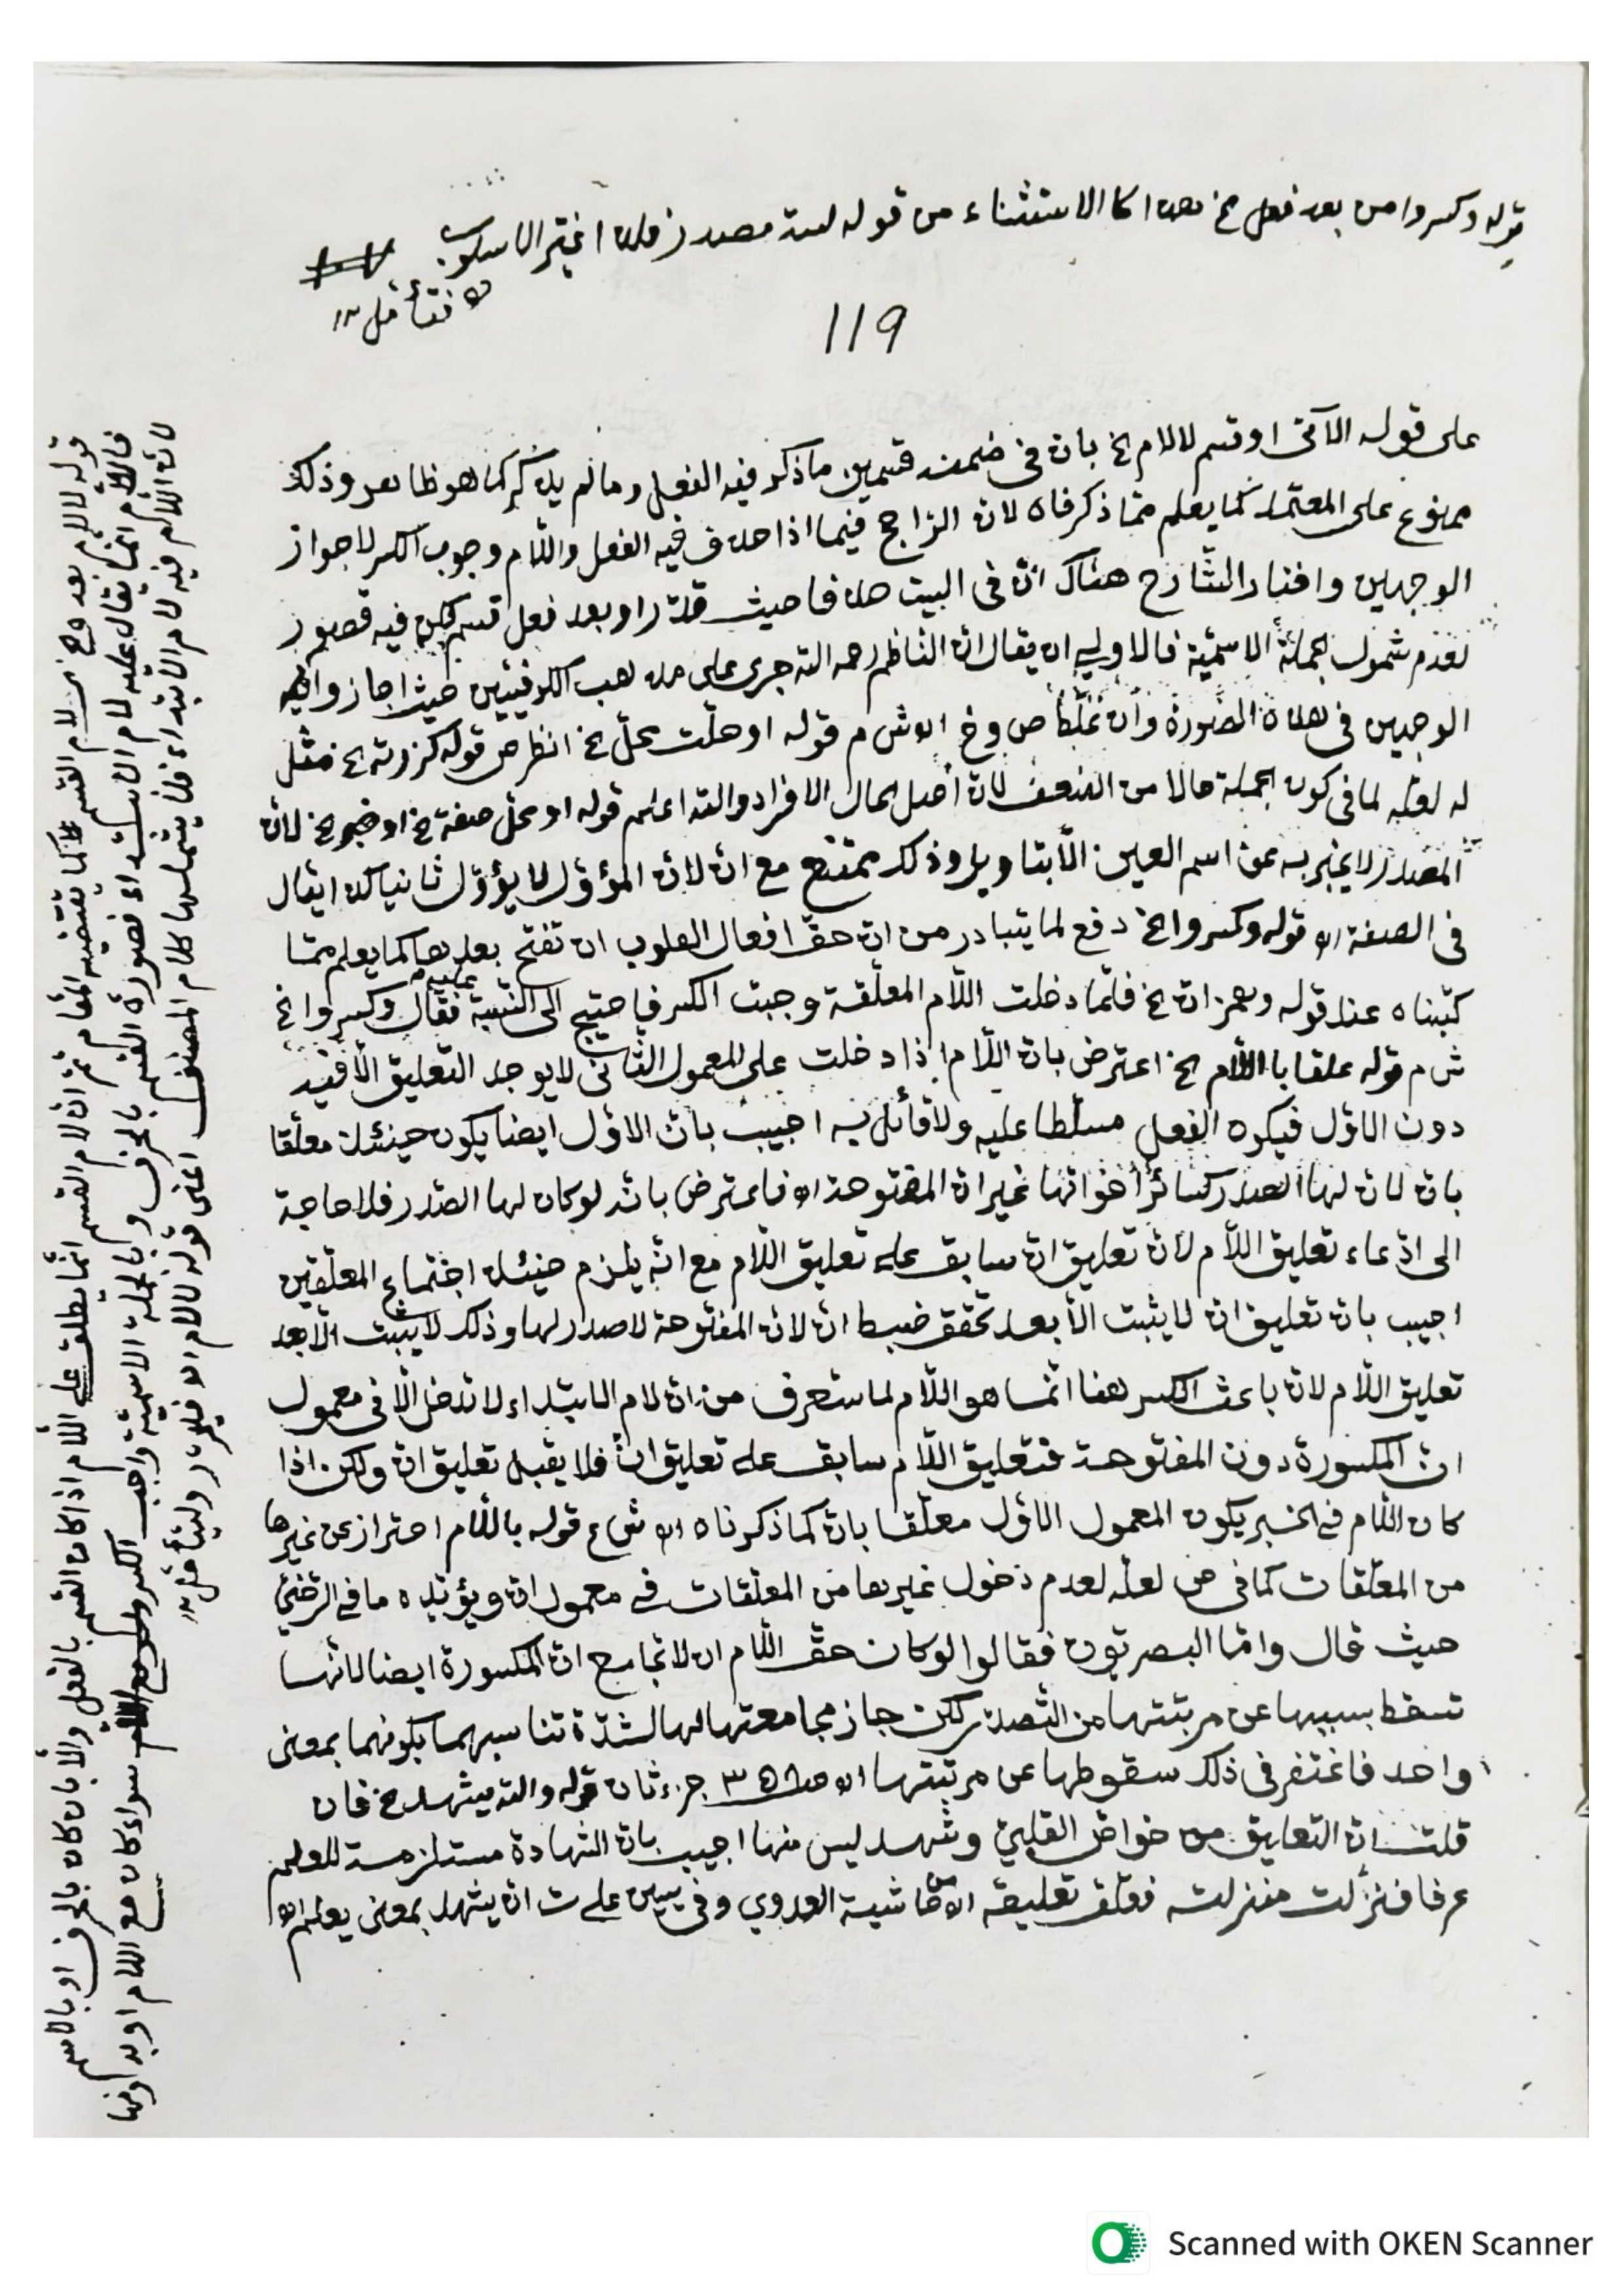 قوله وكسروا من بعد فعل الخ هذا كالاستثناء من قوله لسد مصدر فلذا اغتير الاسلوب
اه فتأمل ١٢
١١٩
على قوله الآتى او قسم لا لام الخ بان فى ضمنه قسمين ما ذكر فيه الفعل وما لم يذكر كما هو ظاهر وذلك
ممنوع على المعتمد كما يعلم مما ذكرناه لان الراجح فيما اذا حذف فيه الفعل واللام وجوب الكسر لا جواز
الوجهين وافاد الشارح هناك ان فى البيت حذفا حيث قدر او بعد فعل قسم لكن فيه قصور
لعدم شمول الجملة الاسمية فالاولى ان يقال ان الناظم رحمه الله جرى على مذهب الكوفيين حيث اجازوا فيه
الوجهين فى هذه الصورة وان غلطا ص وخ اه ش م قوله او حلت محل الخ انظر ص قوله كزرته الخ مثل
له لعله لما فى كون الجملة حالا من الضعف لان اصل الحال الافراد والله اعلم قوله او محل صفة الخ او خبر الخ لان
المصدر لا يخبر به عن اسم العين الا بتاويل وذلك ممتنع مع ان لان المؤول لا يؤول ثانيا كذا يقال
فى الصفة اه قوله وكسروا الخ دفع لما يتبادر من ان حق افعال القلوب ان تفتح بعدها كما يعلم مما
كتبناه عند قوله وهمز ان الخ فلما دخلت اللام المعلقة وجبت الكسر فاحتيج الى التنبيه عليه فقال وكسروا الخ
ش م قوله علقا باللام الخ اعترض بان اللام اذا دخلت على المعمول الثانى لا يوجد التعليق الا فيه
دون الاول فيكون الفعل مسلطا عليه ولا قائل به اجيب بان الاول ايضا يكون حينئذ معلقا
بان لان لها الصدر كسائر اخواتها غير ان المفتوحة اه فاعترض بانه لو كان لها الصدر فلا حاجة
الى ادعاء تعليق اللام لان تعليق ان سابق على تعليق اللام مع انه يلزم حينئذ اجتماع المعلقين
اجيب بان تعليق ان لا يثبت الا بعد تحقق ضبط ان لان المفتوحة لا صدر لها وذلك لا يثبت الا بعد
تعليق اللام لان باعث الكسر هنا انما هو اللام لما ستعرف من ان لام الابتداء لا تدخل الا فى معمول
ان المكسورة دون المفتوحة فتعليق اللام سابق على تعليق ان فلا يقبل تعليق ان ولكن اذا
كان اللام فى الخبر يكون المعمول الاول معلقا بان كما ذكرناه اه ش ع قوله باللام احتراز عن غيرها
من المعلقات كما فى ص لعله لعدم دخول غيرها من المعلقات فى معمول ان ويؤيده ما فى الرضى
حيث قال واما البصريون فقالوا لو كان حق اللام ان لا تجامع ان المكسورة ايضا لانها
تسقط بسببها عن مرتبتها من التصدر لكن جاز مجامعتها لها لشدة تناسبهما بكونهما بمعنى
واحد فاغتفر فى ذلك سقوطها عن مرتبتها اه ص ٣٥٦ جزء ثان قوله والله يشهد الخ فان
قلت ان التعليق من خواص القلبى وشهد ليس منها اجيب بان الشهادة مستلزمة للعلم
عرفا فنزلت منزلته فعلق تعليقه اه من حاشية العدوي وفى يسين على ت ان يشهد بمعنى يعلم اه
قوله لا لام بعده من لام القسم كما يقتضيه المقام ثم ان لام القسم انما يطلق على اللام اذا كان القسم بالفعل والا بان كان بالحرف او بالاسم
فاللام انما يقال عليه لام الابتداء فصورة القسم بالحرف وبالجملة الاسمية واجب الكسر سواء كان مع اللام او بدونها
لان اللام فيه لام الابتداء فلا يشملها كلام المصنف اعنى قوله لا لام اه فليحرر وليتأمل ١٢
Scanned with OKEN Scanner